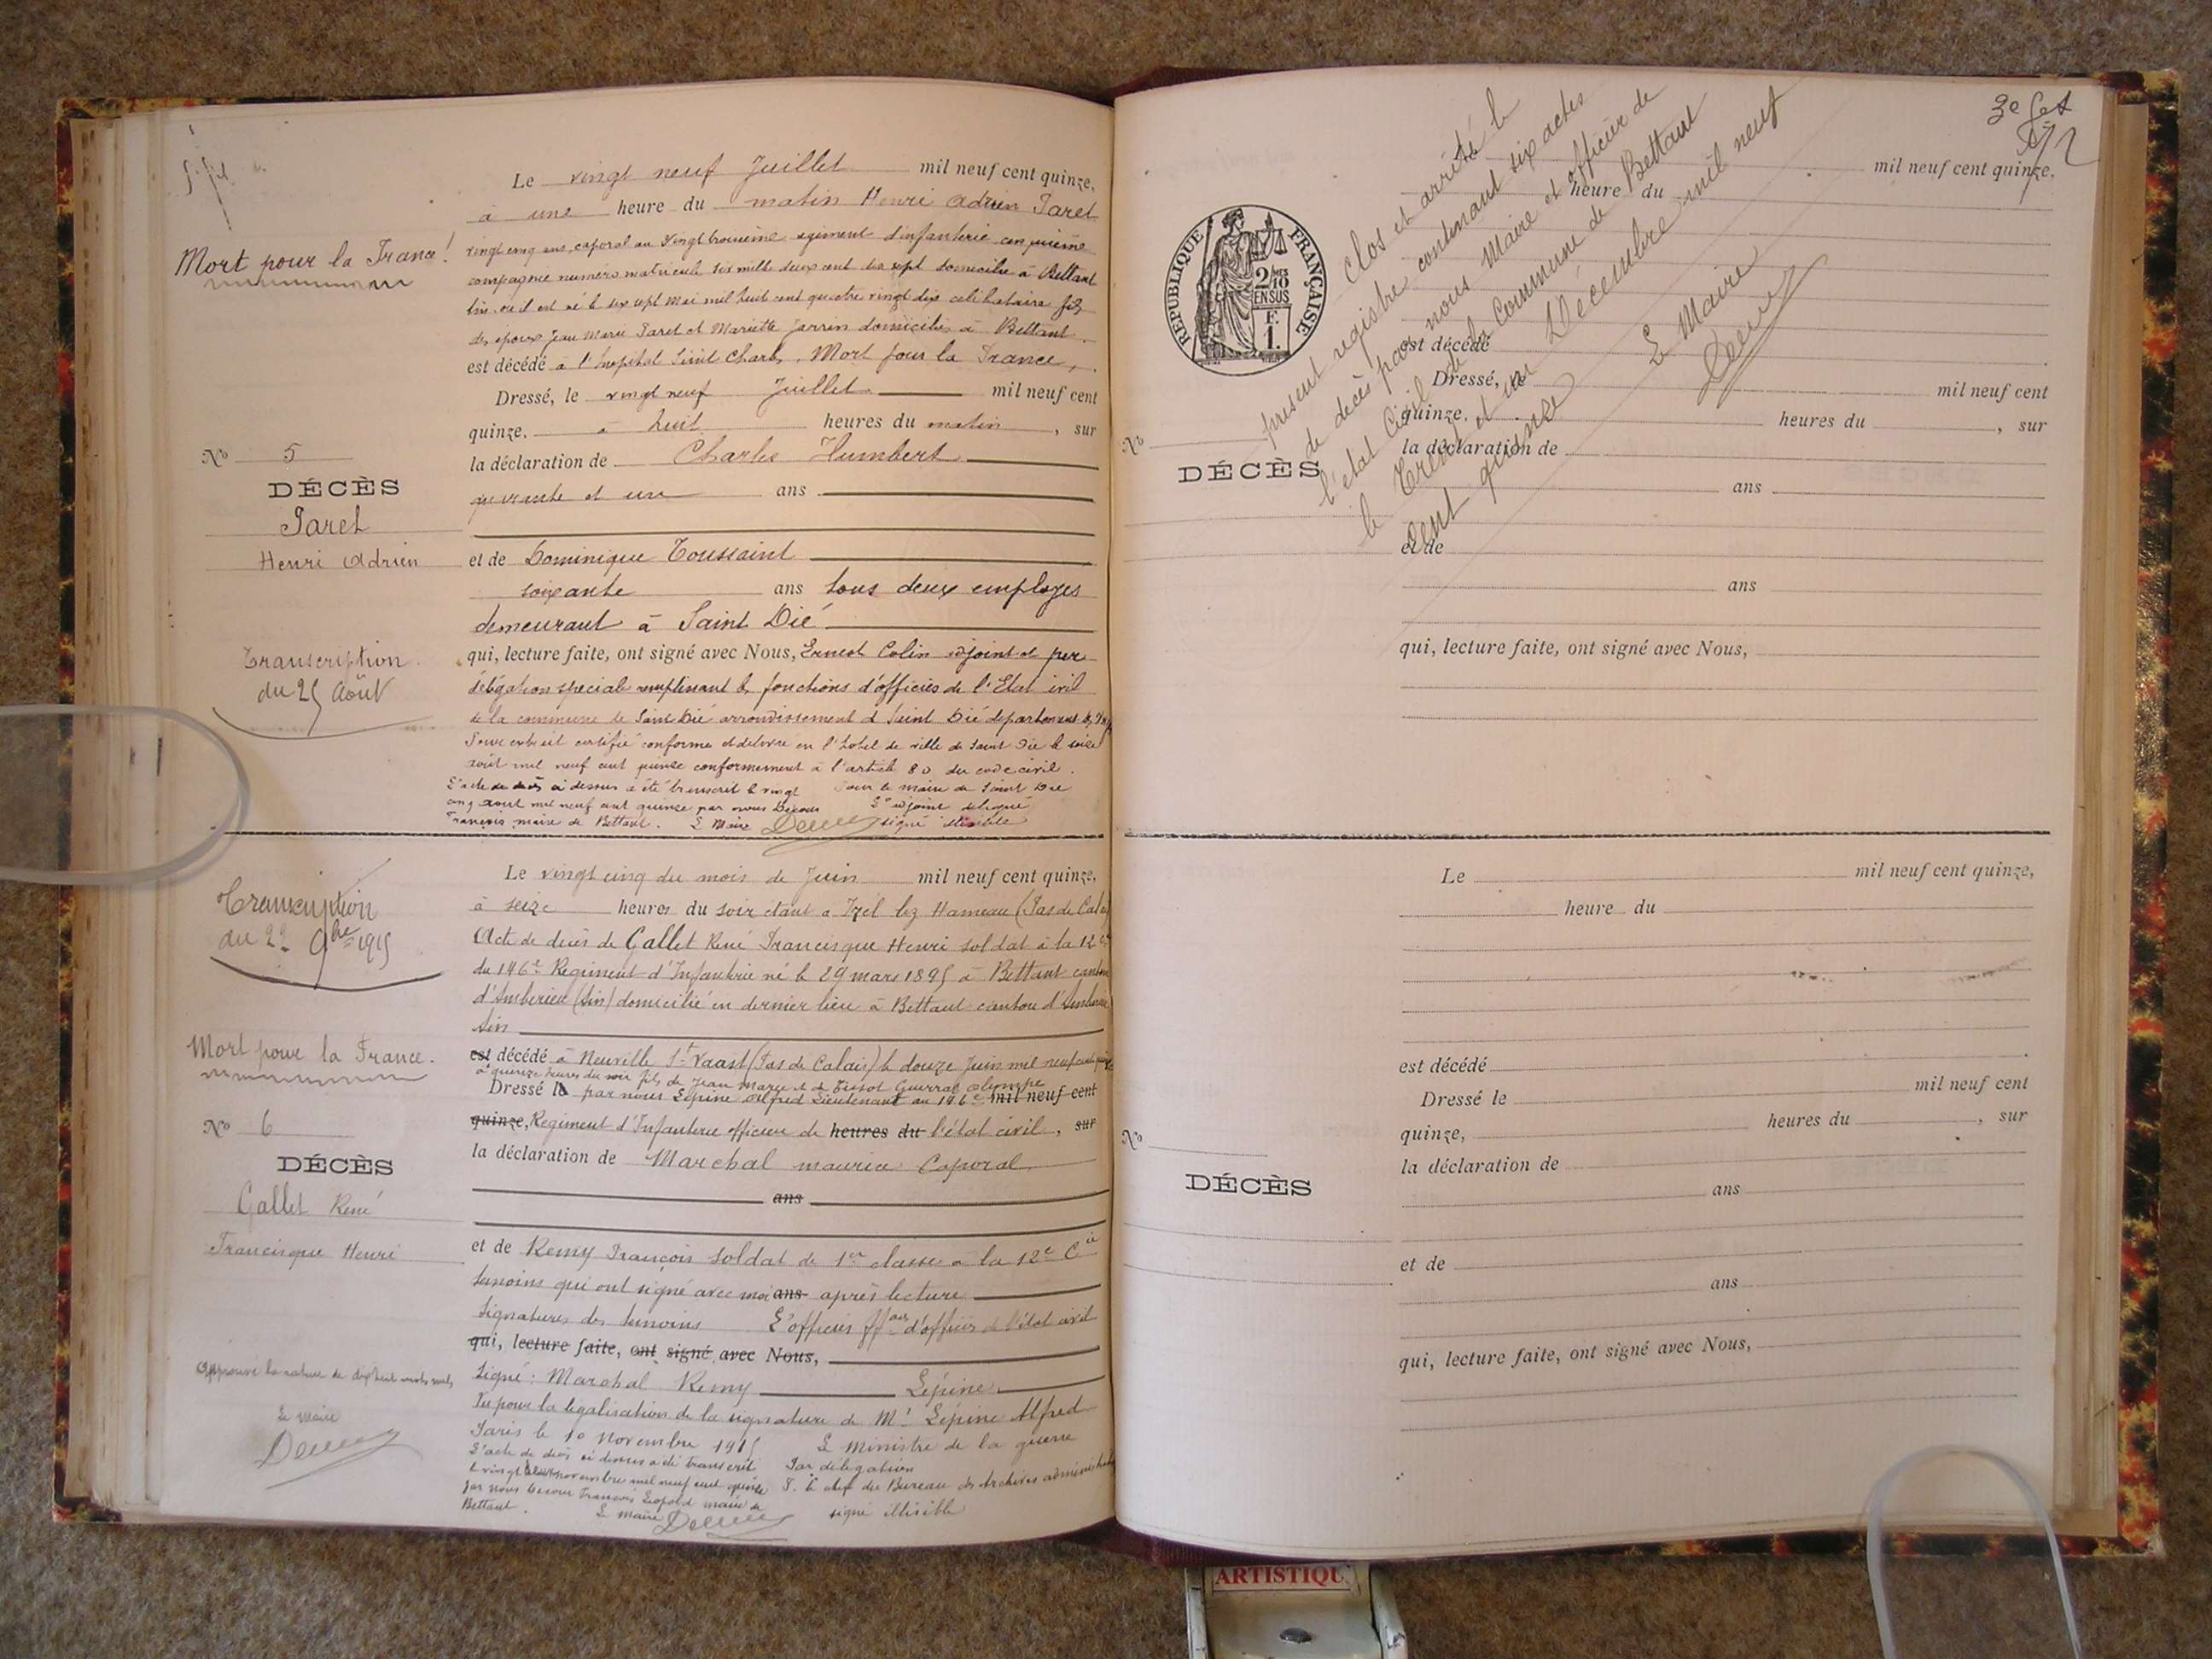 Mort pour la France!
Le vingt neuf Juillet mil neuf cent quinze,
à une heure du matin Henri Adrien Paret
vingt cinq ans, caporal au vingt troisième regiment d'infanterie cinquième
compagnie numéro matricule six mille deux cent dix sept domicilié à Bettant
Ain où il est né le dix sept mai mil huit cent quatre vingt dix célibataire fils
des époux Jean Marie Paret et Mariette Jarrin domiciliés à Bettant
est décédé à l'hopital Saint Charles, Mort pour la France,
Dressé, le vingt neuf Juillet mil neuf cent
quinze. à huit heures du matin, sur
la déclaration de Charles Humbert
quarante et un ans
et de Dominique Toussaint
soixante ans tous deux employés
demeurant à Saint Dié
qui, lecture faite, ont signé avec Nous, Ernest Colin adjoint et par
délégation speciale remplissant les fonctions d'officier de l'Etat civil
de la commune de Saint Dié arrondissement de Saint Dié departement des
Pour extrait certifié conforme et délivré en l'hotel de ville de Saint Dié le seize
août mil neuf cent quinze conformement à l'article 80 du code civil.
L'acte de décès ci dessus a été transcrit le vingt
cinq aout mil neuf cent quinze par nous
François maire de Bettant. Le Maire
Pour le maire de Saint Dié
L'adjoint délégué
signé illisible
N° 5
DÉCÈS
Paret
Henri Adrien
Transcription
du 25 Août
Transcription
du 22 9bre 1915
Mort pour la France.
N° 6
DÉCÈS
Gallet René
Francisque Henri
Approuvé la rature de dix huit mots nuls
Le Maire
Le vingt cinq du mois de Juin mil neuf cent quinze,
à seize heures du soir étant à Izel lez Hameau (Pas de Calais)
Acte de décès de Gallet René Francisque Henri soldat à la 12e Cie
du 146e Regiment d'Infanterie né le 29 mars 1895 à Bettant canton
d'Amberieu (Ain) domicilié en dernier lieu à Bettant canton d'Amberieu
Ain
est décédé à Neuville St Vaast (Pas de Calais) le douze Juin mil neuf cent quinze
à quinze heures du soir fils de Jean Marie et de Tissot Guerraz Olympe
Dressé le par nous Lépine Alfred Lieutenant au 146e mil neuf cent
quinze, Regiment d'Infanterie officier de heures du l'état civil, sur
la déclaration de Marchal Maurice Caporal
ans
et de Remy François soldat de 1ere classe à la 12e Cie
temoins qui ont signé avec moi ans après lecture
Signatures des temoins L'officier ff d'officier de l'état civil
qui, lecture faite, ont signé avec Nous,
Signé: Marchal Remy Lépine
Vu pour la legalisation de la signature de Mr Lépine Alfred
Paris le 10 Novembre 1915 Le ministre de la guerre
Par délégation
P. le chef du Bureau des Archives administratives
signé illisible
L'acte de décès ci dessus a été transcrit
le vingt deux novembre mil neuf cent quinze
par nous François Léopold maire de
Bettant. Le Maire
3e
Clos et arrêté le
présent registre contenant six actes
de décès par nous Maire et officier de
l'état Civil de la Commune de Bettant
le Trente et un Décembre mil neuf
cent quinze
Le Maire
REPUBLIQUE FRANÇAISE
2/10
EN SUS
F.
1.
mil neuf cent quinze,
heure du
est décédé
Dressé, le mil neuf cent
quinze, heures du , sur
la déclaration de
ans
et de
ans
qui, lecture faite, ont signé avec Nous,
N°
DÉCÈS
Le mil neuf cent quinze,
heure du
est décédé
Dressé le mil neuf cent
quinze, heures du , sur
la déclaration de
ans
et de
ans
qui, lecture faite, ont signé avec Nous,
N°
DÉCÈS
ARTISTIQU